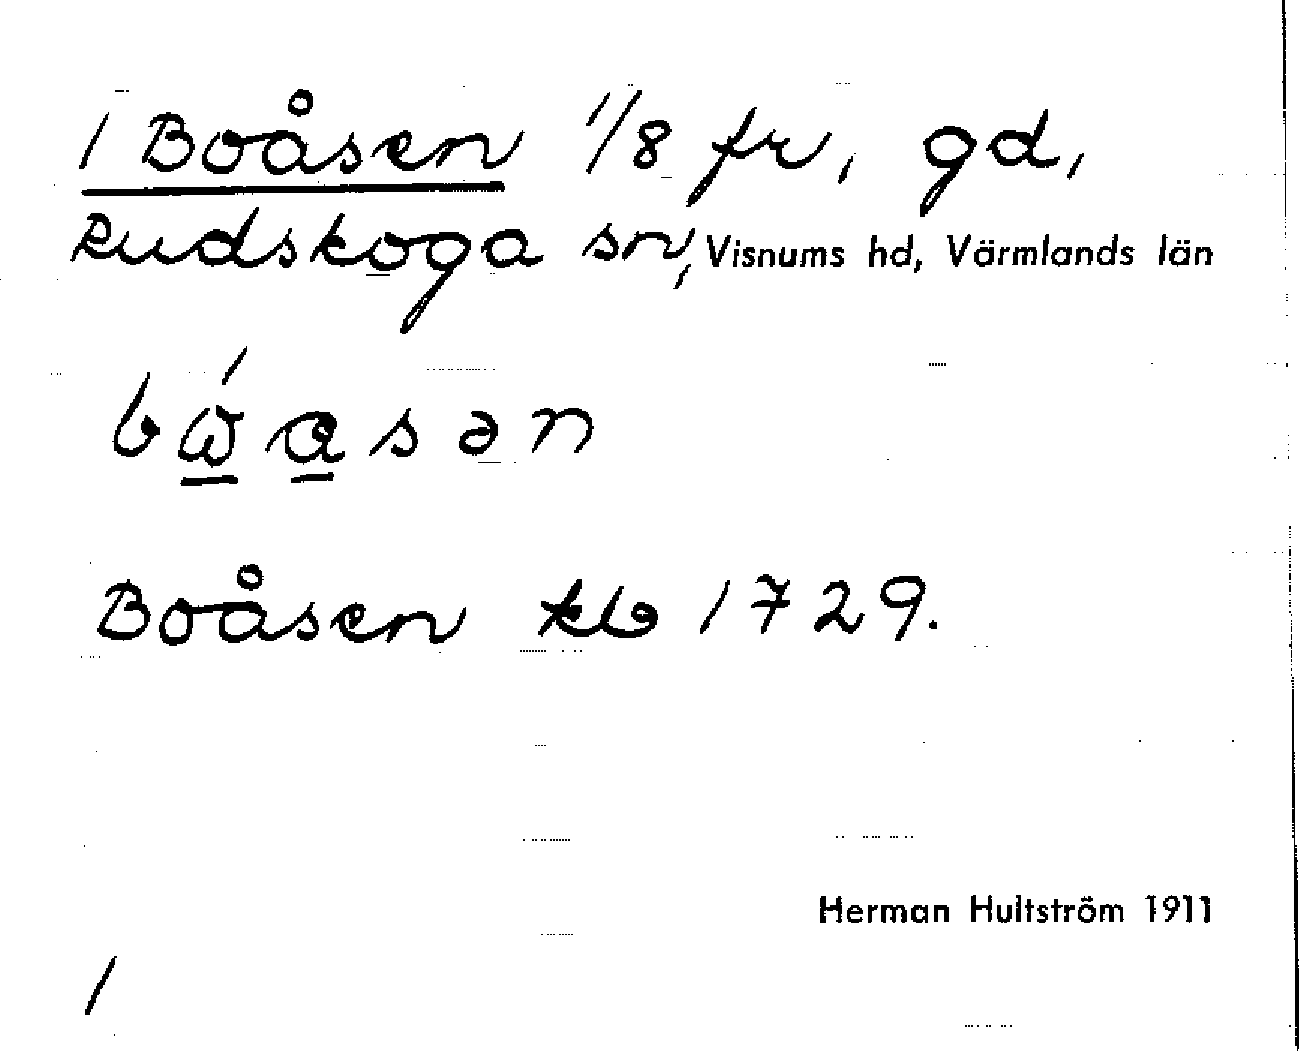 1 Boåsen 1/8 fr, gd,
Rudskoga sn, Visnums hd, Värmlands län
Boåsen kb 1729.
Herman Hultström 1911
1